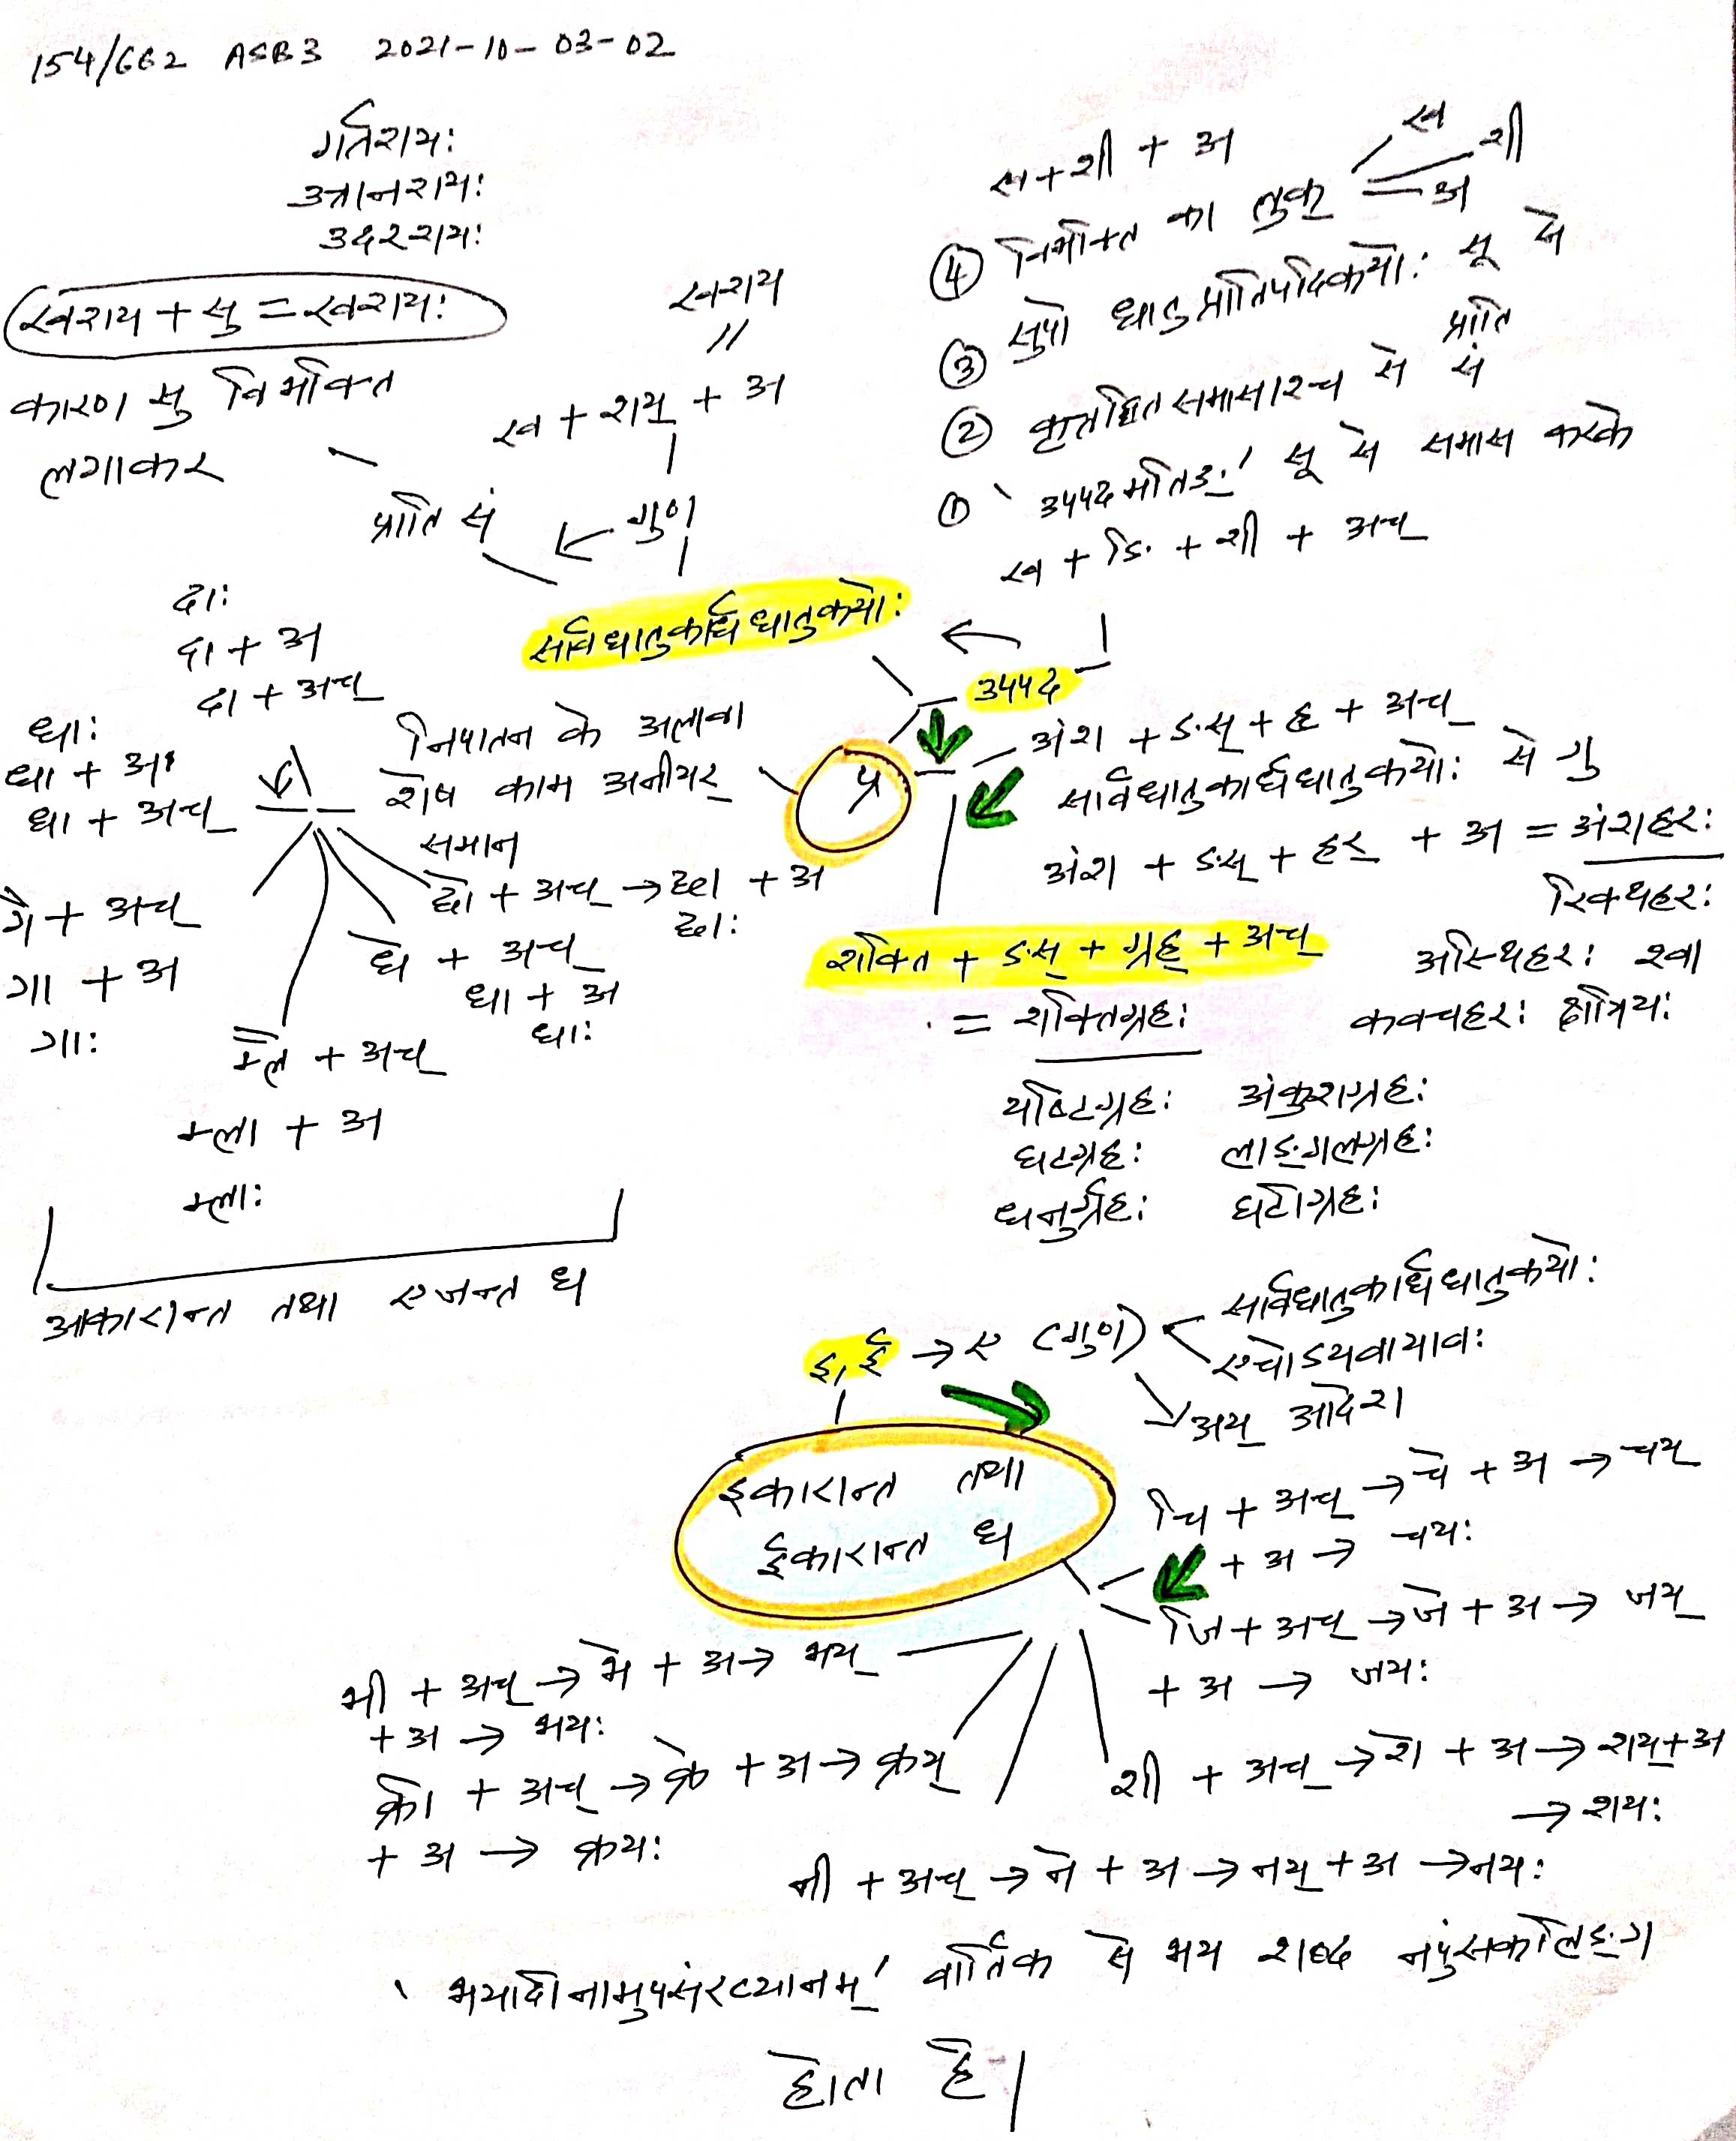 154/662 ASB3 2021-10-03-02
गतिशयः
उत्तानशयः
उदरशयः
खशय + सु = खशयः
कारण सु विभक्ति
लगाकर
खशय
//
ख + शय् + अ
गुण
प्राति सं
ख + शी + अ
④ विभक्ति का लुक्
ख
शी
अ
③ सुपो धातुप्रातिपदिकयोः सू से
② कृत्तद्धितसमासाश्च से प्राति सं
① 'उपपदमतिङ्' सू से समास करके
ख + ङि + शी + अच्
सार्वधातुकार्धधातुकयोः
उपपद
प्र
निपातन के अलावा
शेष काम अनीयर्
समान
दाः
दा + अ
दा + अच्
धाः
धा + अ
धा + अच्
गै + अच्
गा + अ
गाः
म्लै + अच्
म्ला + अ
म्लाः
धे + अच्
धा + अ
धाः
दो + अच् → दा + अ
दाः
आकारान्त तथा एजन्त धा
अंश + ङस् + हृ + अच्
सार्वधातुकार्धधातुकयोः से गु
अंश + ङस् + हर् + अ = अंशहरः
रिक्थहरः
अस्थिहरः श्वा
कवचहरः क्षत्रियः
शक्ति + ङस् + ग्रह् + अच्
= शक्तिग्रहः
यष्टिग्रहः अंकुशग्रहः
घटग्रहः लाङ्गलग्रहः
धनुर्ग्रहः घटीग्रहः
इ, ई → ए (गुण)
सार्वधातुकार्धधातुकयोः
एचोऽयवायावः
अय् आदेश
इकारान्त तथा
ईकारान्त धा
चि + अच् → चे + अ → चय्
+ अ → चयः
जि + अच् → जे + अ → जय्
+ अ → जयः
भी + अच् → भे + अ → भय्
+ अ → भयः
क्री + अच् → क्रे + अ → क्रय्
+ अ → क्रयः
शी + अच् → शे + अ → शय् + अ
→ शयः
नी + अच् → ने + अ → नय् + अ → नयः
'भयादीनामुपसंख्यानम्' वार्तिक से भय शब्द नपुंसकलिङ्ग
होता है।